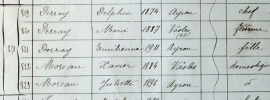 819 Perray Delphin 1874 Ayron chef
820 Perray Marie 1887 Vasles femme
821 Perray Emilienne 1911 Ayron fille
822 Moreau Xavier 1884 Vasles domestique
823 Moreau Juliette 1896 Ayron